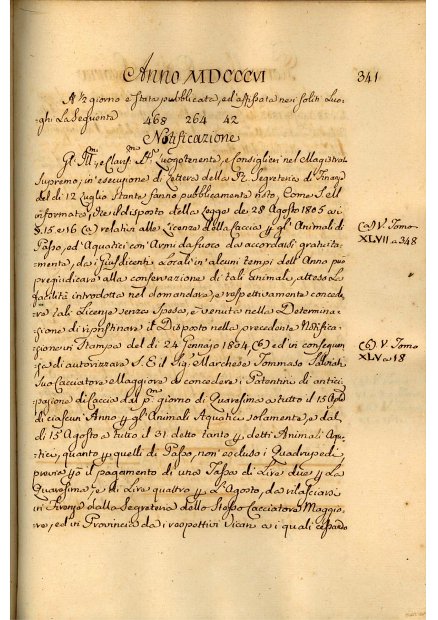 Anno MDCCCVI 341
A 1/2 giorno è stata pubblicata, ed affissata nei soliti Luo-
ghi La Seguente
468 264 42
Notificazione
Gl' Ill.mi, e Clariss. SS.ri Luogotenente, e Consiglieri nel Magistrato
Supremo, in esecuzione di Lettera della R. Segreteria di Finanze
del dì 12 Luglio Stante fanno pubblicamente noto, Come S. M.
informata, che il disposto della Legge de 28 Agosto 1805 ai
§. 15. e 16 (a) relativi alle Licenze della Caccia pp gl' Animali di
Passo, ed Aquatici con Armi da fuoco da accordarsi gratuita-
mente, da i Giusdicenti Locali in alcuni tempi dell' Anno può
pregiudicare alla conservazione di tali animali, atteso La
facilità introdotta nel domandare, e respettivamente concede-
re tali Licenze senza Spesa, è venuta nella Determina-
zione di ripristinare il Disposto nella precedente Notifica-
zione in Stampa del dì 24 Gennajo 1804 (b) ed in conseguen-
za di autorizzare S. E. il Sig.re Marchese Tommaso
Suo Cacciatore Maggiore a concedere i Patentini di antici-
pazione di Caccia dal P.mo giorno di Quaresima a tutto il 15 Aprile
di ciascun' Anno pp gl' Animali Aquatici solamente, e dal
dì 15 Agosto a tutto il 31 detto tanto pp detti Animali Aqua-
tici, quanto pp quelli di Passo, non escluso i Quadrupedi
previo però il pagamento di una Tassa di Lire dieci pp La
Quaresima, e di Lire quattro pp L' Agosto, da rilasciarsi
in Firenze dalla Segreteria dello Stesso Cacciatore Maggio-
re, ed in Provincia da i respettivi Vicari a i quali
(a) V. Tomo
XLVII a 348
(b) V. Tomo
XLV a 18